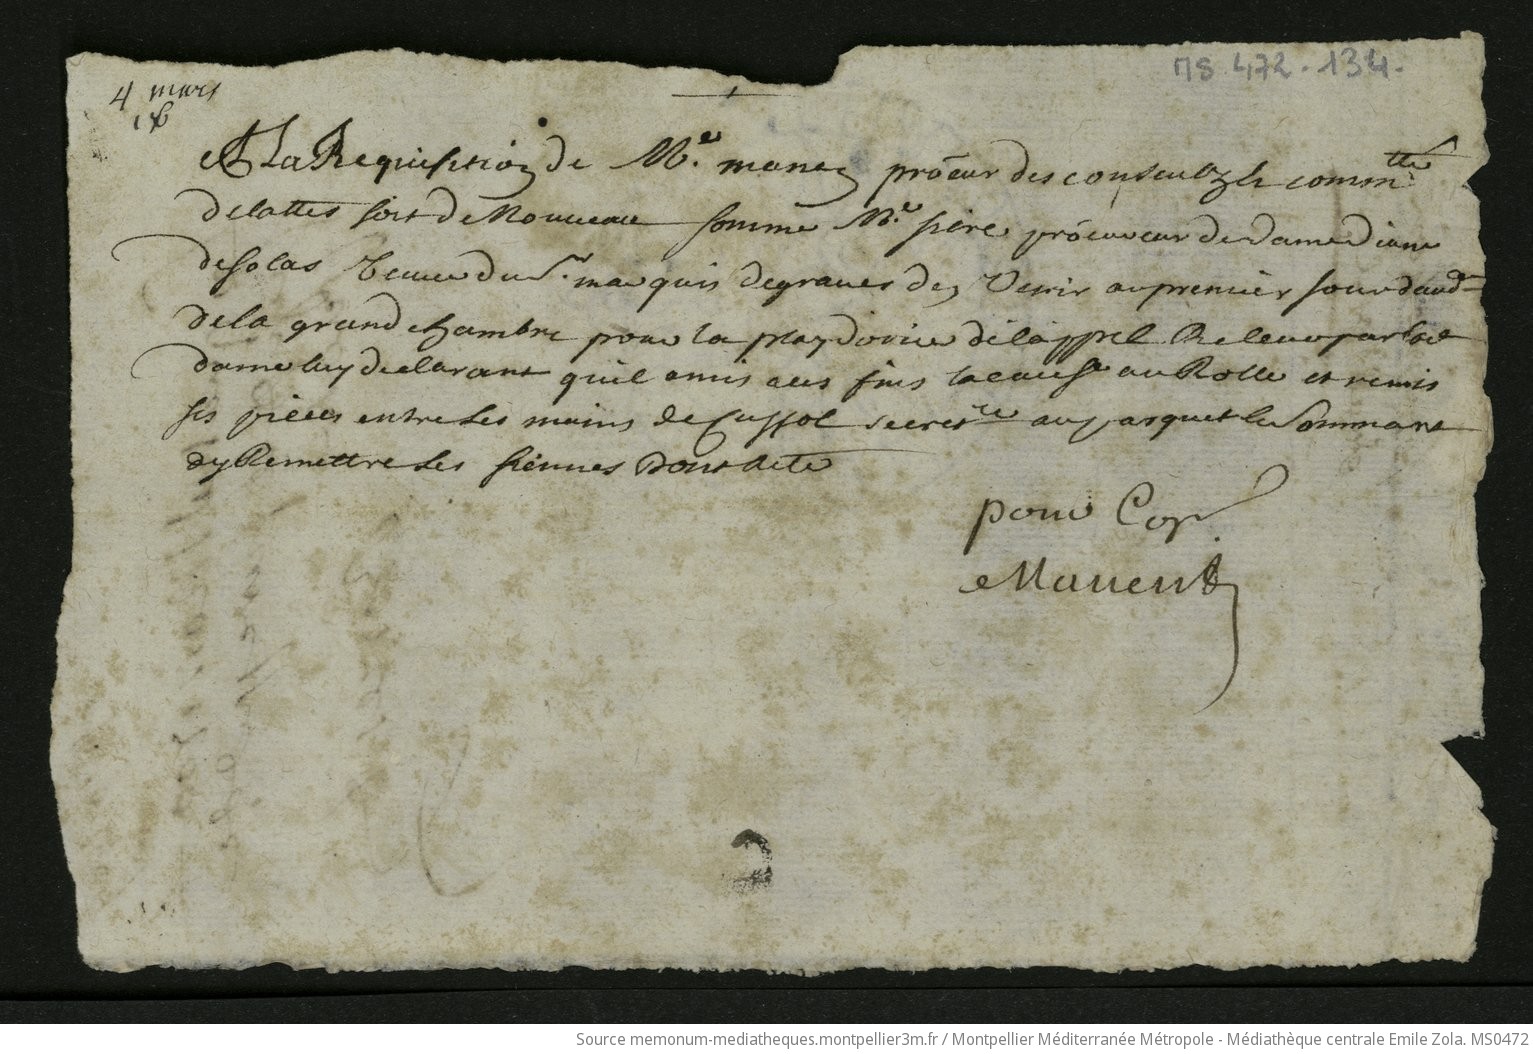 MS 472.134.
4 mars
A La Requisition de Me manen procur des conseulz & commtté
delattes soit de Nouveau sommé Me sicre procureur de dame diane
de solas veuve du sr marquis de graves de venir au premier jour daudce
de la grand chambre pour la playdoirie de lappel Relevé par lad
dame luy declarant quil a mis aux fins la cause au Rolle et remis
ses pieces entre les mains de Cussol secretre au parquet le sommant
dy Remettre les siennes Dont acte
pour Cop
Manent
Source memonum-mediatheques.montpellier3m.fr / Montpellier Méditerranée Métropole - Médiathèque centrale Emile Zola. MS0472